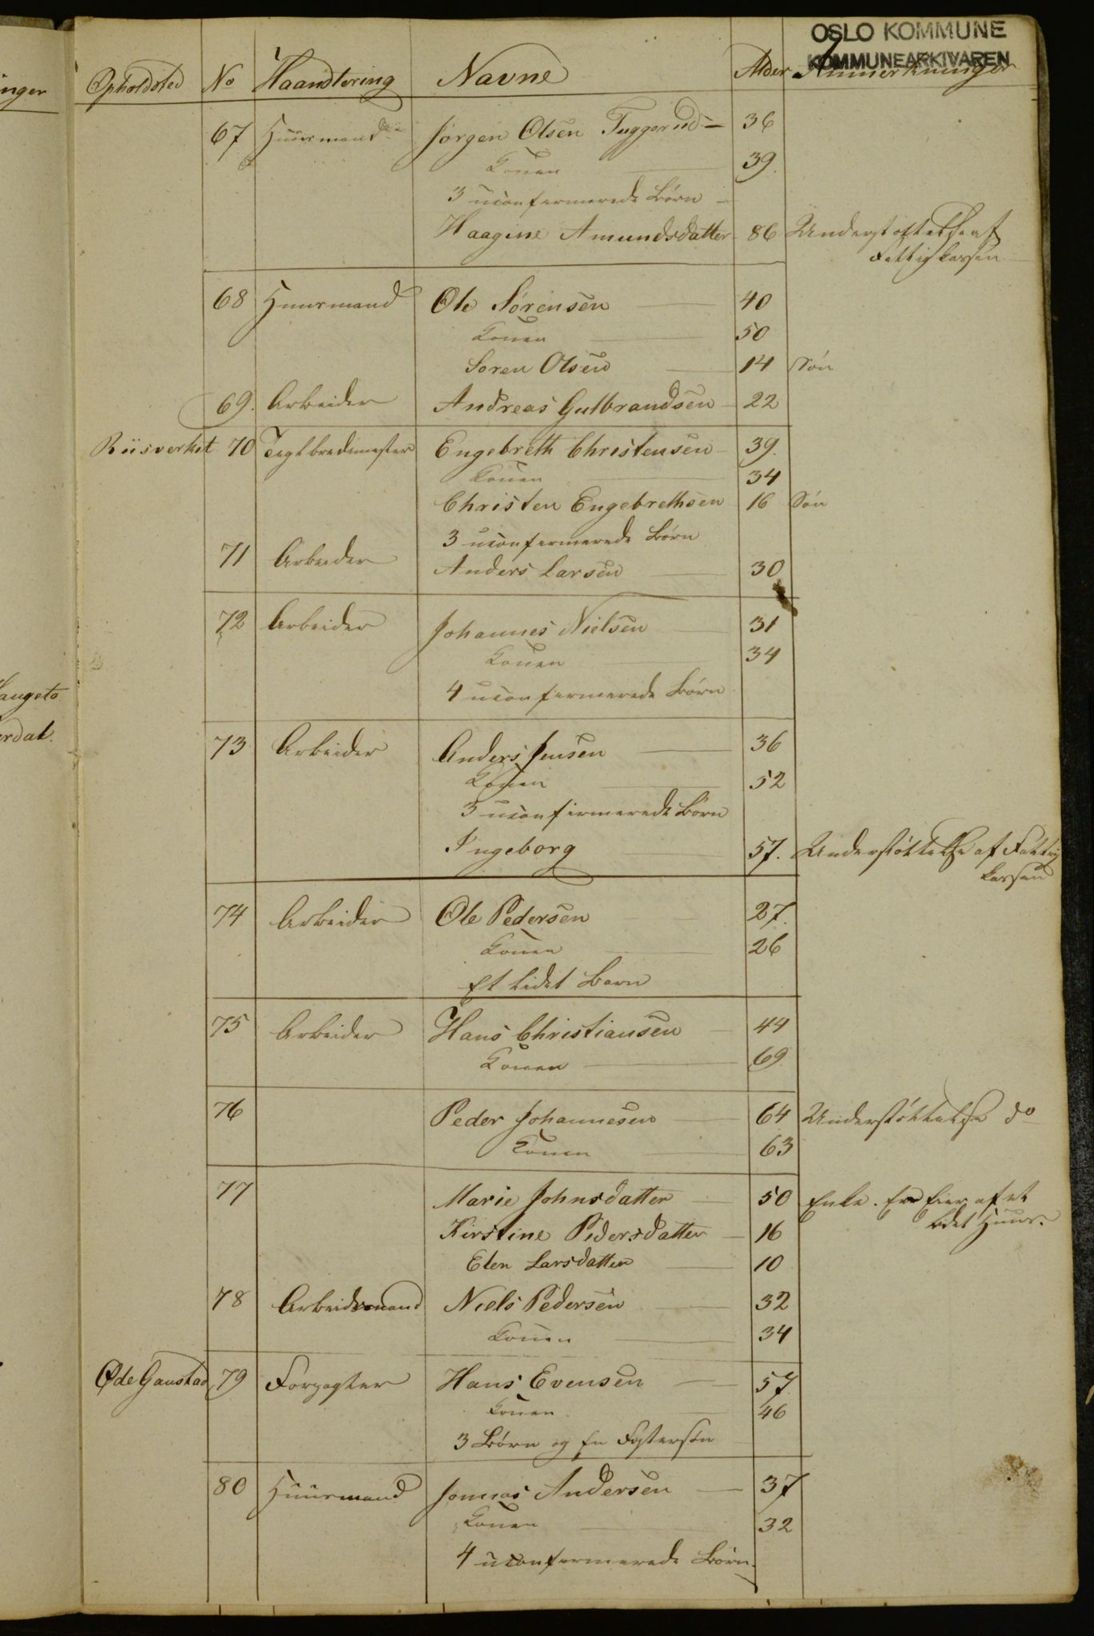 OSLO KOMMUNE
KOMMUNEARKIVAREN
Opholdsted No Haandtering Navne Alder Anmerkninger
67 Huusmand Jørgen Olsen Tuggerud 36
Konen 39
3 uconfermerede Børn
Haagine Amundsdatter 86 Understøttelse af
Fattigkassen
68 Huusmand Ole Sørensen 40
Konen 50
Soren Olsen 14 Søn
69. Arbeider Andreas Gulbrandsen 22
Riisverket 70 Teglbrendemester Engebreth Christensen 39.
Konen 34
Christen Engebrethsen 16 Søn
3 uconfermerede Børn
71 Arbeider Anders Larsen 30
72 Arbeider Johannes Nielsen 31
Konen 34
4 uconfermerede Børn
73 Arbeider Anders Jensen 36
Konen 52
3 uconfirmerede Børn
Ingeborg 57. Understøttelse af Fattig
kassen
74 Arbeider Ole Pedersen 27.
Konen 26
Et lidet Barn
75 Arbeider Hans Christiansen 44
Konen 69
76 Peder Johannesen 64 Understøttelse do
Konen 63
77 Marie Johnsdatter 50 Enke. Er Eier af et
lidet Huus.
Kirstine Pedersdatter 16
Elen Larsdatter 10
78 Arbeidsmand Niels Pedersen 32
Konen 34
Øde Gaustad 79 Forpagter Hans Evensen 57
Konen 46
3 Børn og En Fostersøn
80 Huusmand Jonas Andersen 37
Konen 32
4 uconfermerede Børn.